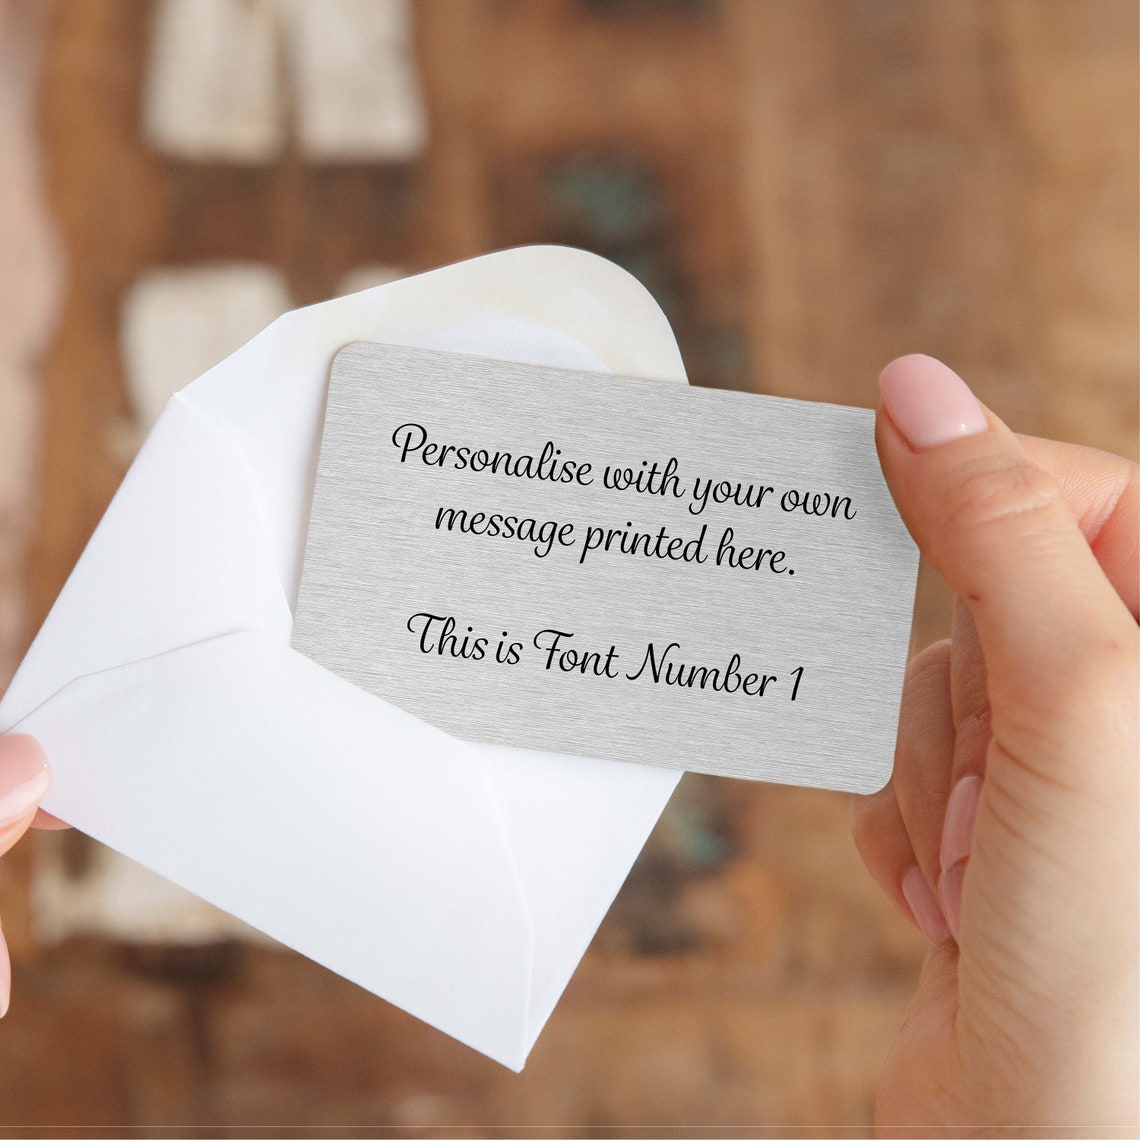 Personalise with your own
message printed here.
This is Font Number 1